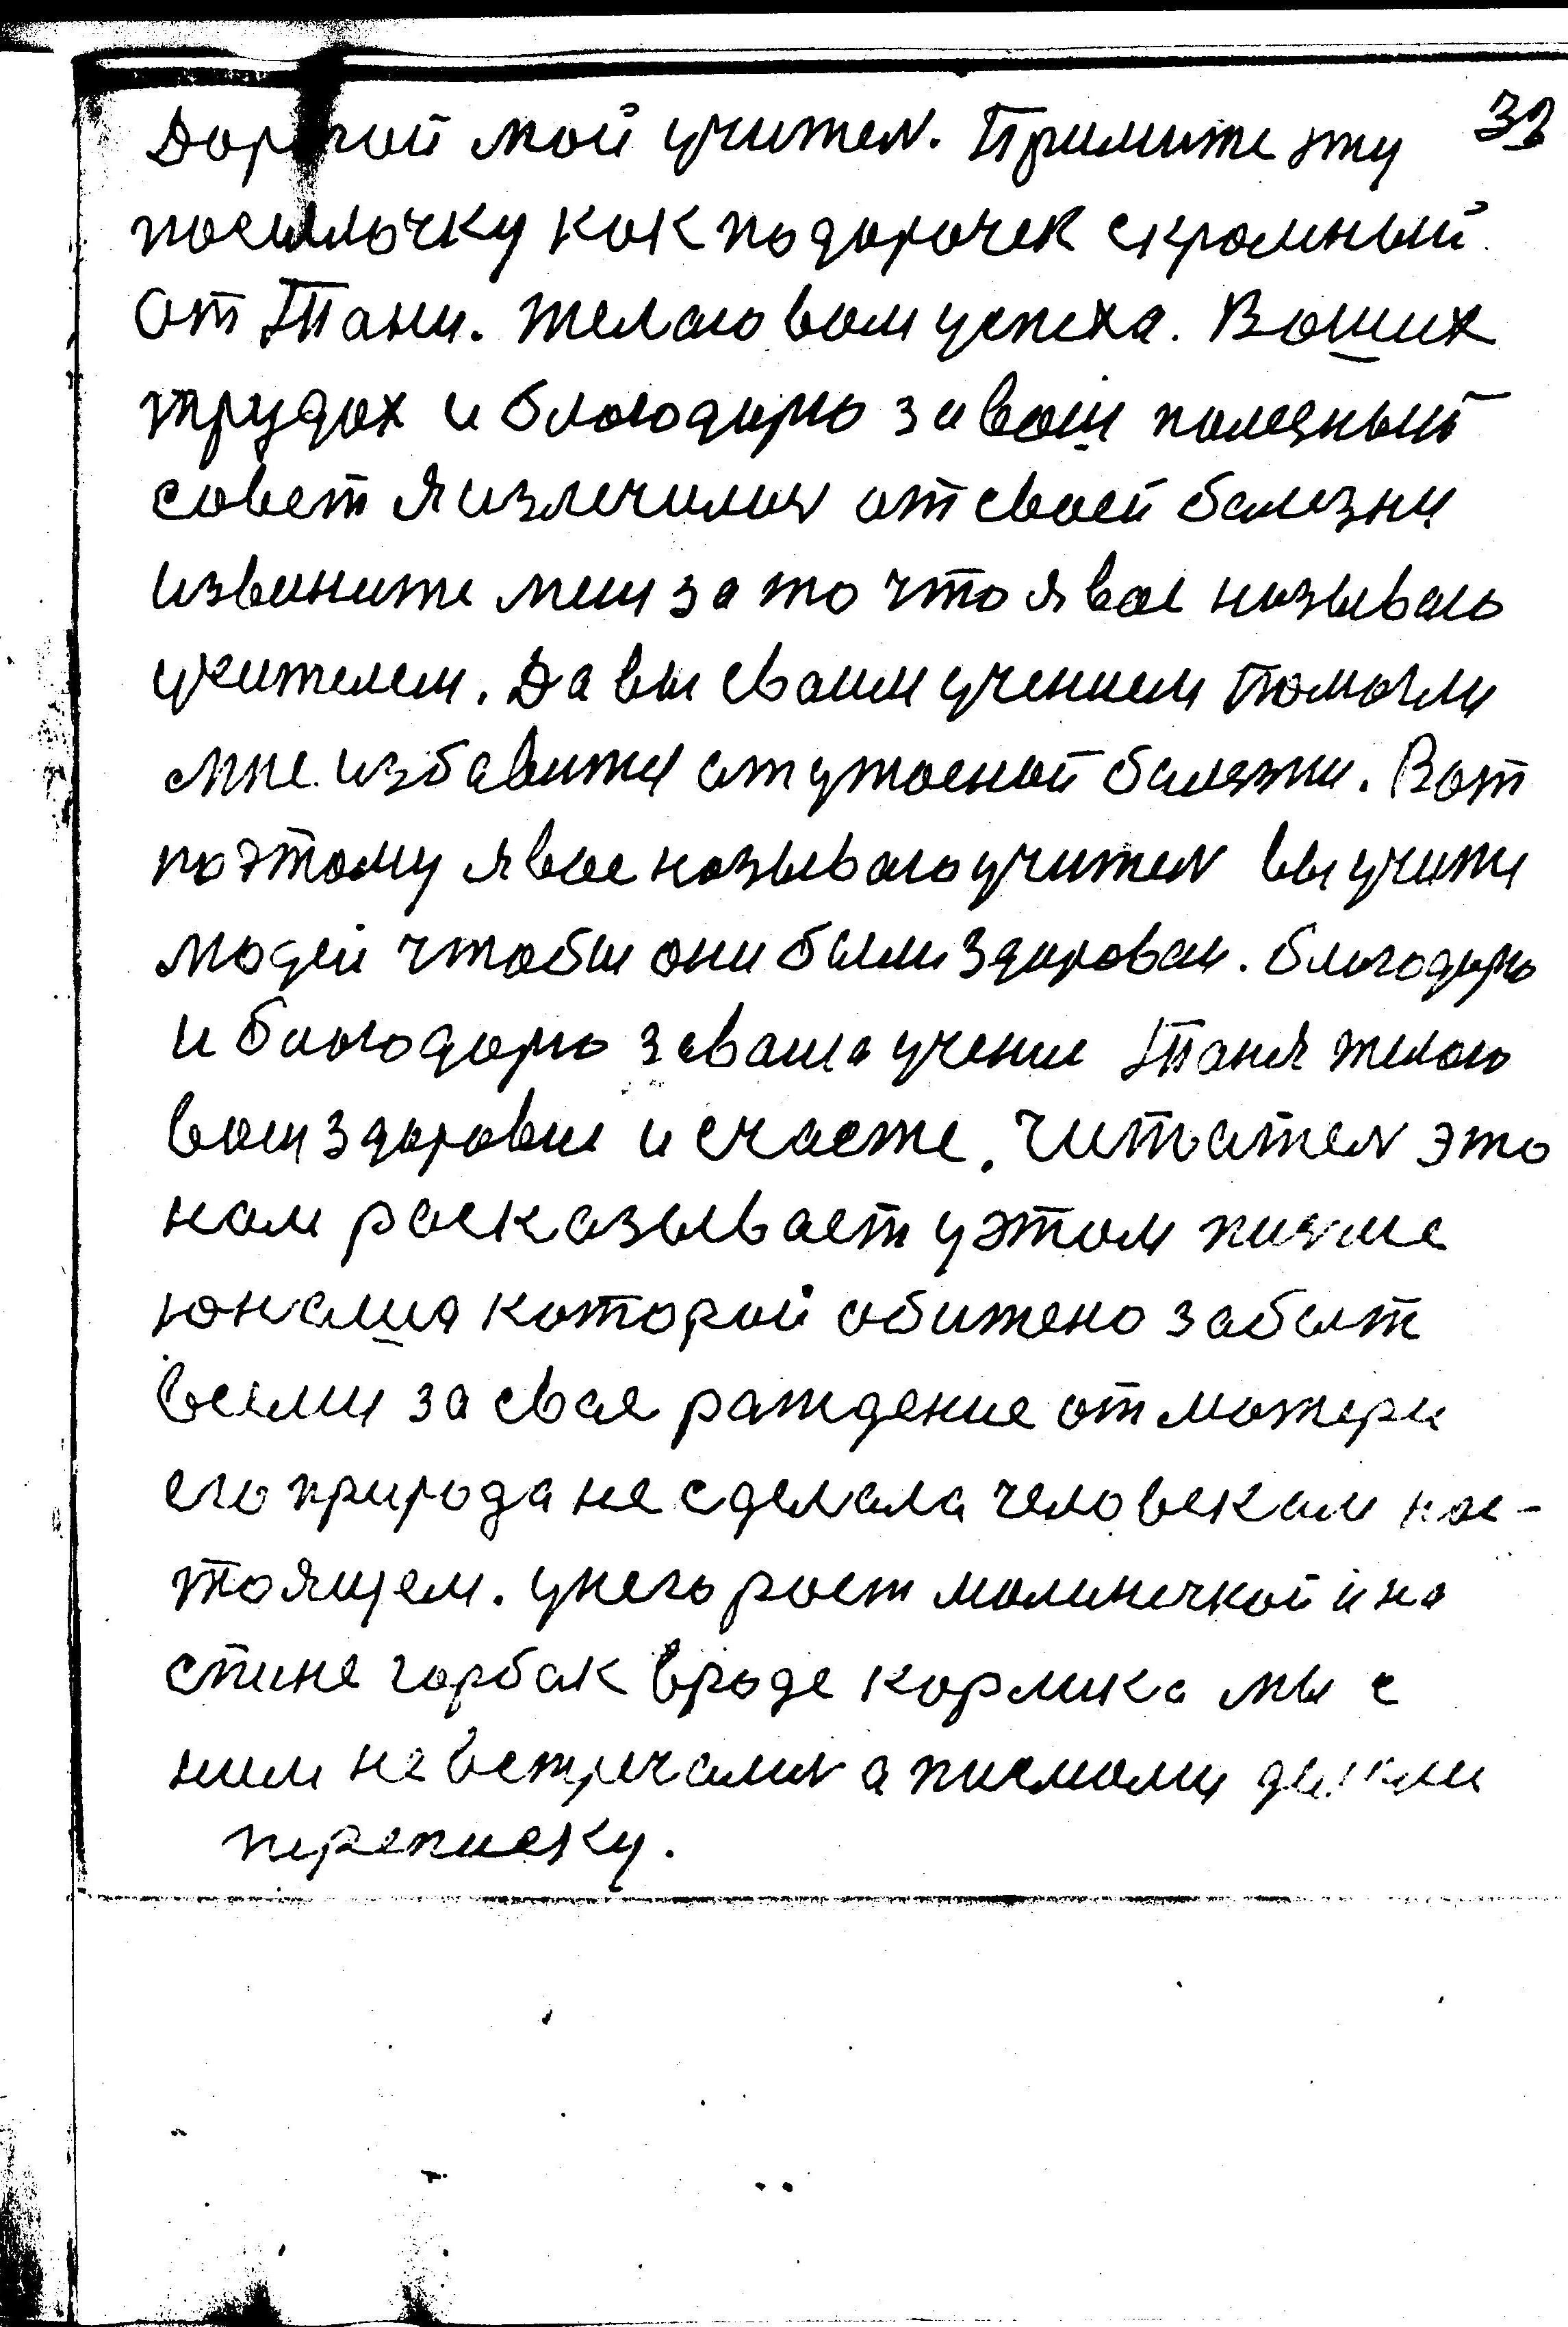 Дорогой мой учител. Примите эту 32
посылочку как подарочек скромный
От Тани. Желаю вам успеха. Ваших
трудах и благодарю за ваш полезный
совет Я излечилися от своей балезни
извините мени за то что я вас называю
учителем. Да вы сваим учением помагли
мне избавится от ужасной балезни. Вот
поэтому я вас называю учител вы учити
людей чтобы они были здоровы. благодарю
и благодарю за ваша учение Таня желаю
вам здоровие и счасте. Читател это
нам расказывает у этом писме
юнаша которой обижено забыт
всеми за свае раждение от матери
его природа не сделала человекам нас-
тоящем. у него рост малинечкой и на
спине горбак вроде карлика мы с
ним не встречалис а писмами держали
переписку.